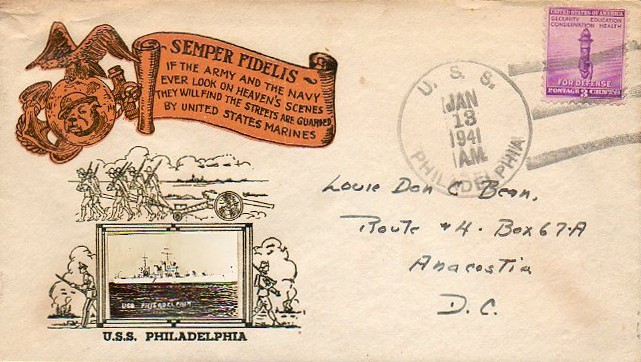 SEMPER FIDELIS
IF THE ARMY AND THE NAVY
EVER LOOK ON HEAVEN'S SCENES
THEY WILL FIND THE STREETS ARE GUARDED
BY UNITED STATES MARINES
UNITED STATES OF AMERICA
SECURITY EDUCATION
CONSERVATION HEALTH
FOR DEFENSE
POSTAGE 3 CENTS
U. S. S.
JAN
13
1941
AM
PHILADELPHIA
Louie Don C Bean,
Route #4 - Box 67-A
Anacostia
D.C.
USS PHILADELPHIA
U.S.S. PHILADELPHIA